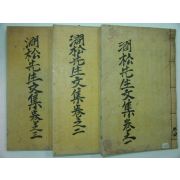 澗松先生文集卷之一
澗松先生文集卷之二
澗松先生文集卷之三